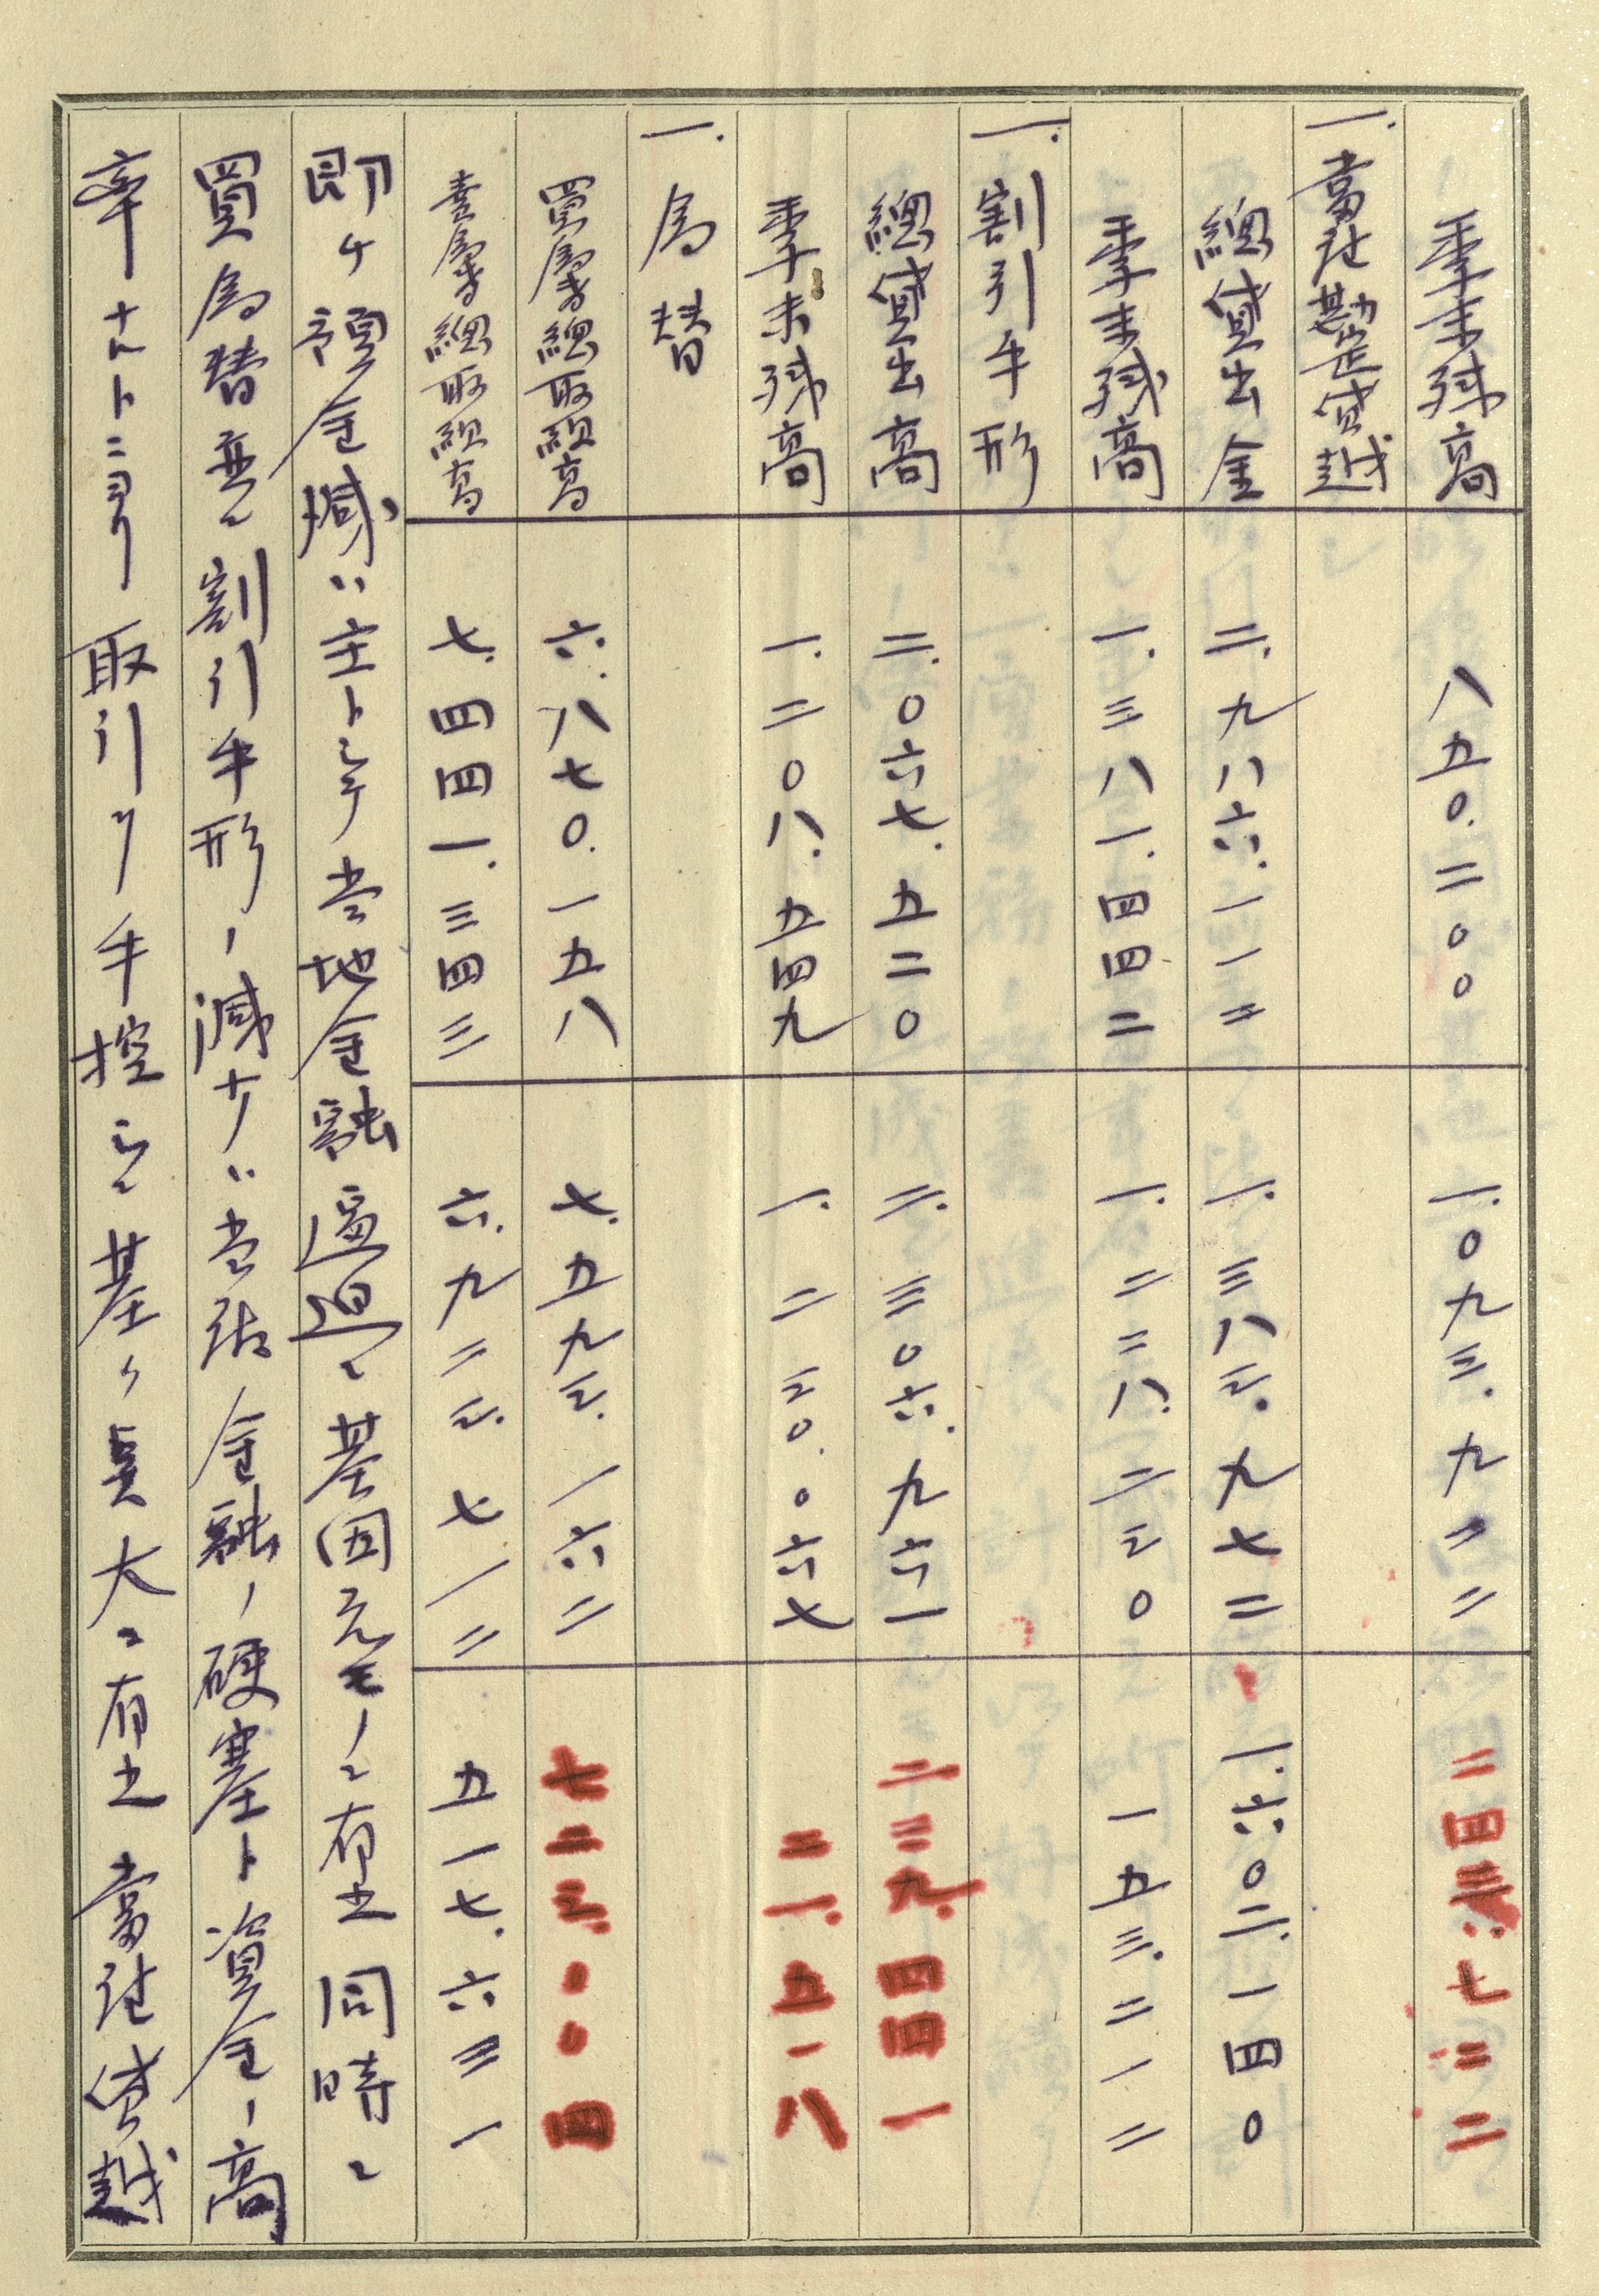 季末残高 八五〇.二〇〇 一.〇九三.九二二 二四三.七二二
一.當社勘定貸越
總貸出金 二.九八六.一一二 一.三八三.九七二 一.六〇二.一四〇
季末残高 一.三八一.四四二 一.二二八.二三〇 一五三.二一二
一.割引手形
總貸出高 二.〇六七.五二〇 二.三〇六.九六一 二三九.四四一
季末残高 一.二〇八.五四九 一.二三〇.〇六七 二一.五一八
一.為替
買為替總取組高 六.八七〇.一五八 七.五九三.一六二 七二三.〇〇四
賣為替總取組高 七.四四一.三四三 六.九二三.七一二 五一七.六三一
即チ預金減ハ主トシテ当地金融逼迫ニ基因元モノニ有之同時ニ
買為替並ニ割引手形ノ減少ハ当方金融ノ硬塞ト資金ノ高
率ナルトニヨリ取引ヲ手控シニ基ク点大ニ有之當社貸越